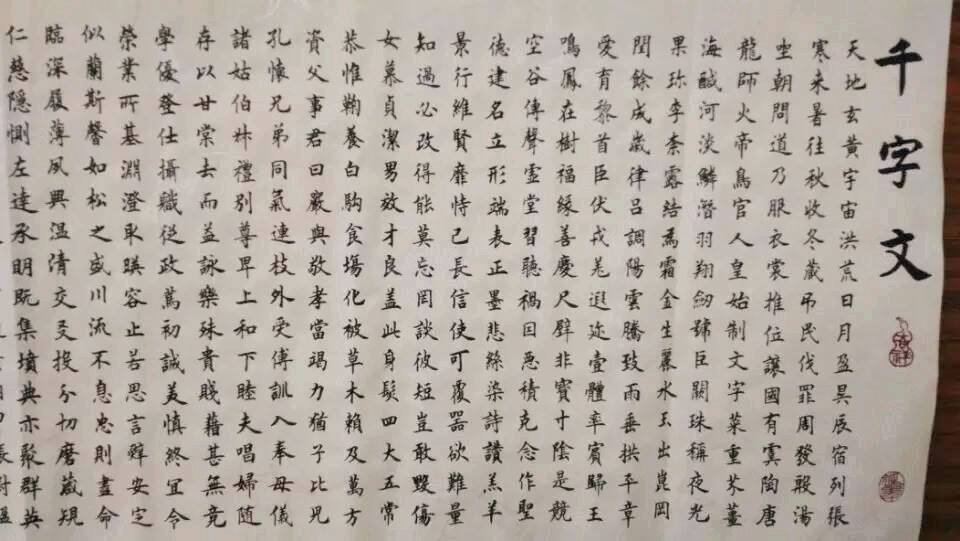 千字文
天地玄黃宇宙洪荒日月盈昃辰宿列張
寒来暑往秋收冬藏弔民伐罪周發殷湯
坐朝問道乃服衣裳推位讓國有虞陶唐
龍師火帝鳥官人皇始制文字菜重芥薑
海鹹河淡鱗潛羽翔劒號巨闕珠稱夜光
果珍李柰露結為霜金生麗水玉出崑岡
閏餘成歲律呂調陽雲騰致雨垂拱平章
愛育黎首臣伏戎羌遐迩壹體率賓歸王
鳴鳳在樹福緣善慶尺璧非寶寸陰是競
空谷傳聲虛堂習聽禍因惡積克念作聖
德建名立形端表正墨悲絲染詩讚羔羊
景行維賢靡恃己長信使可覆器欲難量
知過必改得能莫忘罔談彼短豈敢毀傷
女慕貞潔男效才良蓋此身髮四大五常
恭惟鞠養白駒食場化被草木賴及萬方
資父事君曰嚴與敬孝當竭力猶子比兒
孔懷兄弟同氣連枝外受傅訓入奉母儀
諸姑伯叔禮別尊卑上和下睦夫唱婦隨
存以甘棠去而益詠樂殊貴賤藉甚無竟
學優登仕攝職從政篤初誠美慎終宜令
榮業所基淵澄取暎容止若思言辭安定
似蘭斯馨如松之盛川流不息忠則盡命
臨深履薄夙興温凊交友投分切磨箴規
仁慈隱惻左達承明既集墳典亦聚群英